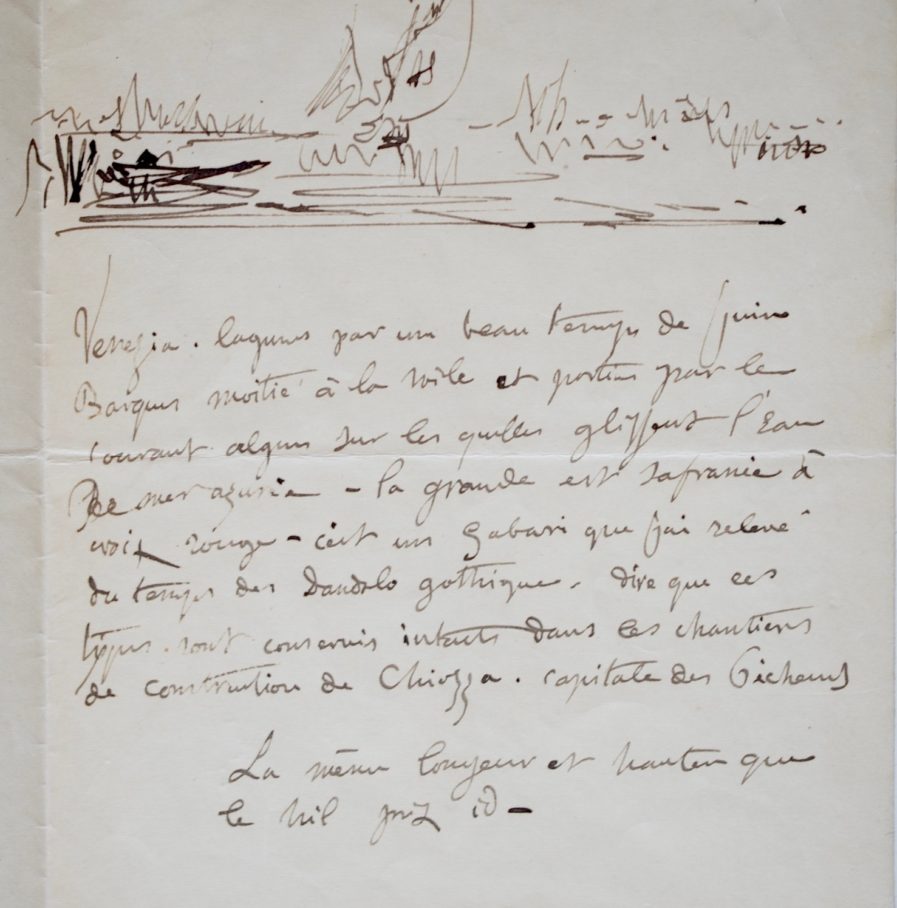 Venezia. lagunes par un beau temps de Juin
Barques moitié à la voile et portées par le
courant algues sur les quilles glissent l'Eau
De mer azurée - la grande est safranée à
croix rouge - c'est un Gabari que j'ai relevé
du temps des Dandolo gothique. dire que ces
types sont conservés intacts dans les chantiers
de construction de Chiozza. capitale des Pêcheurs
La même longueur et hauteur que
le Nil prix id -